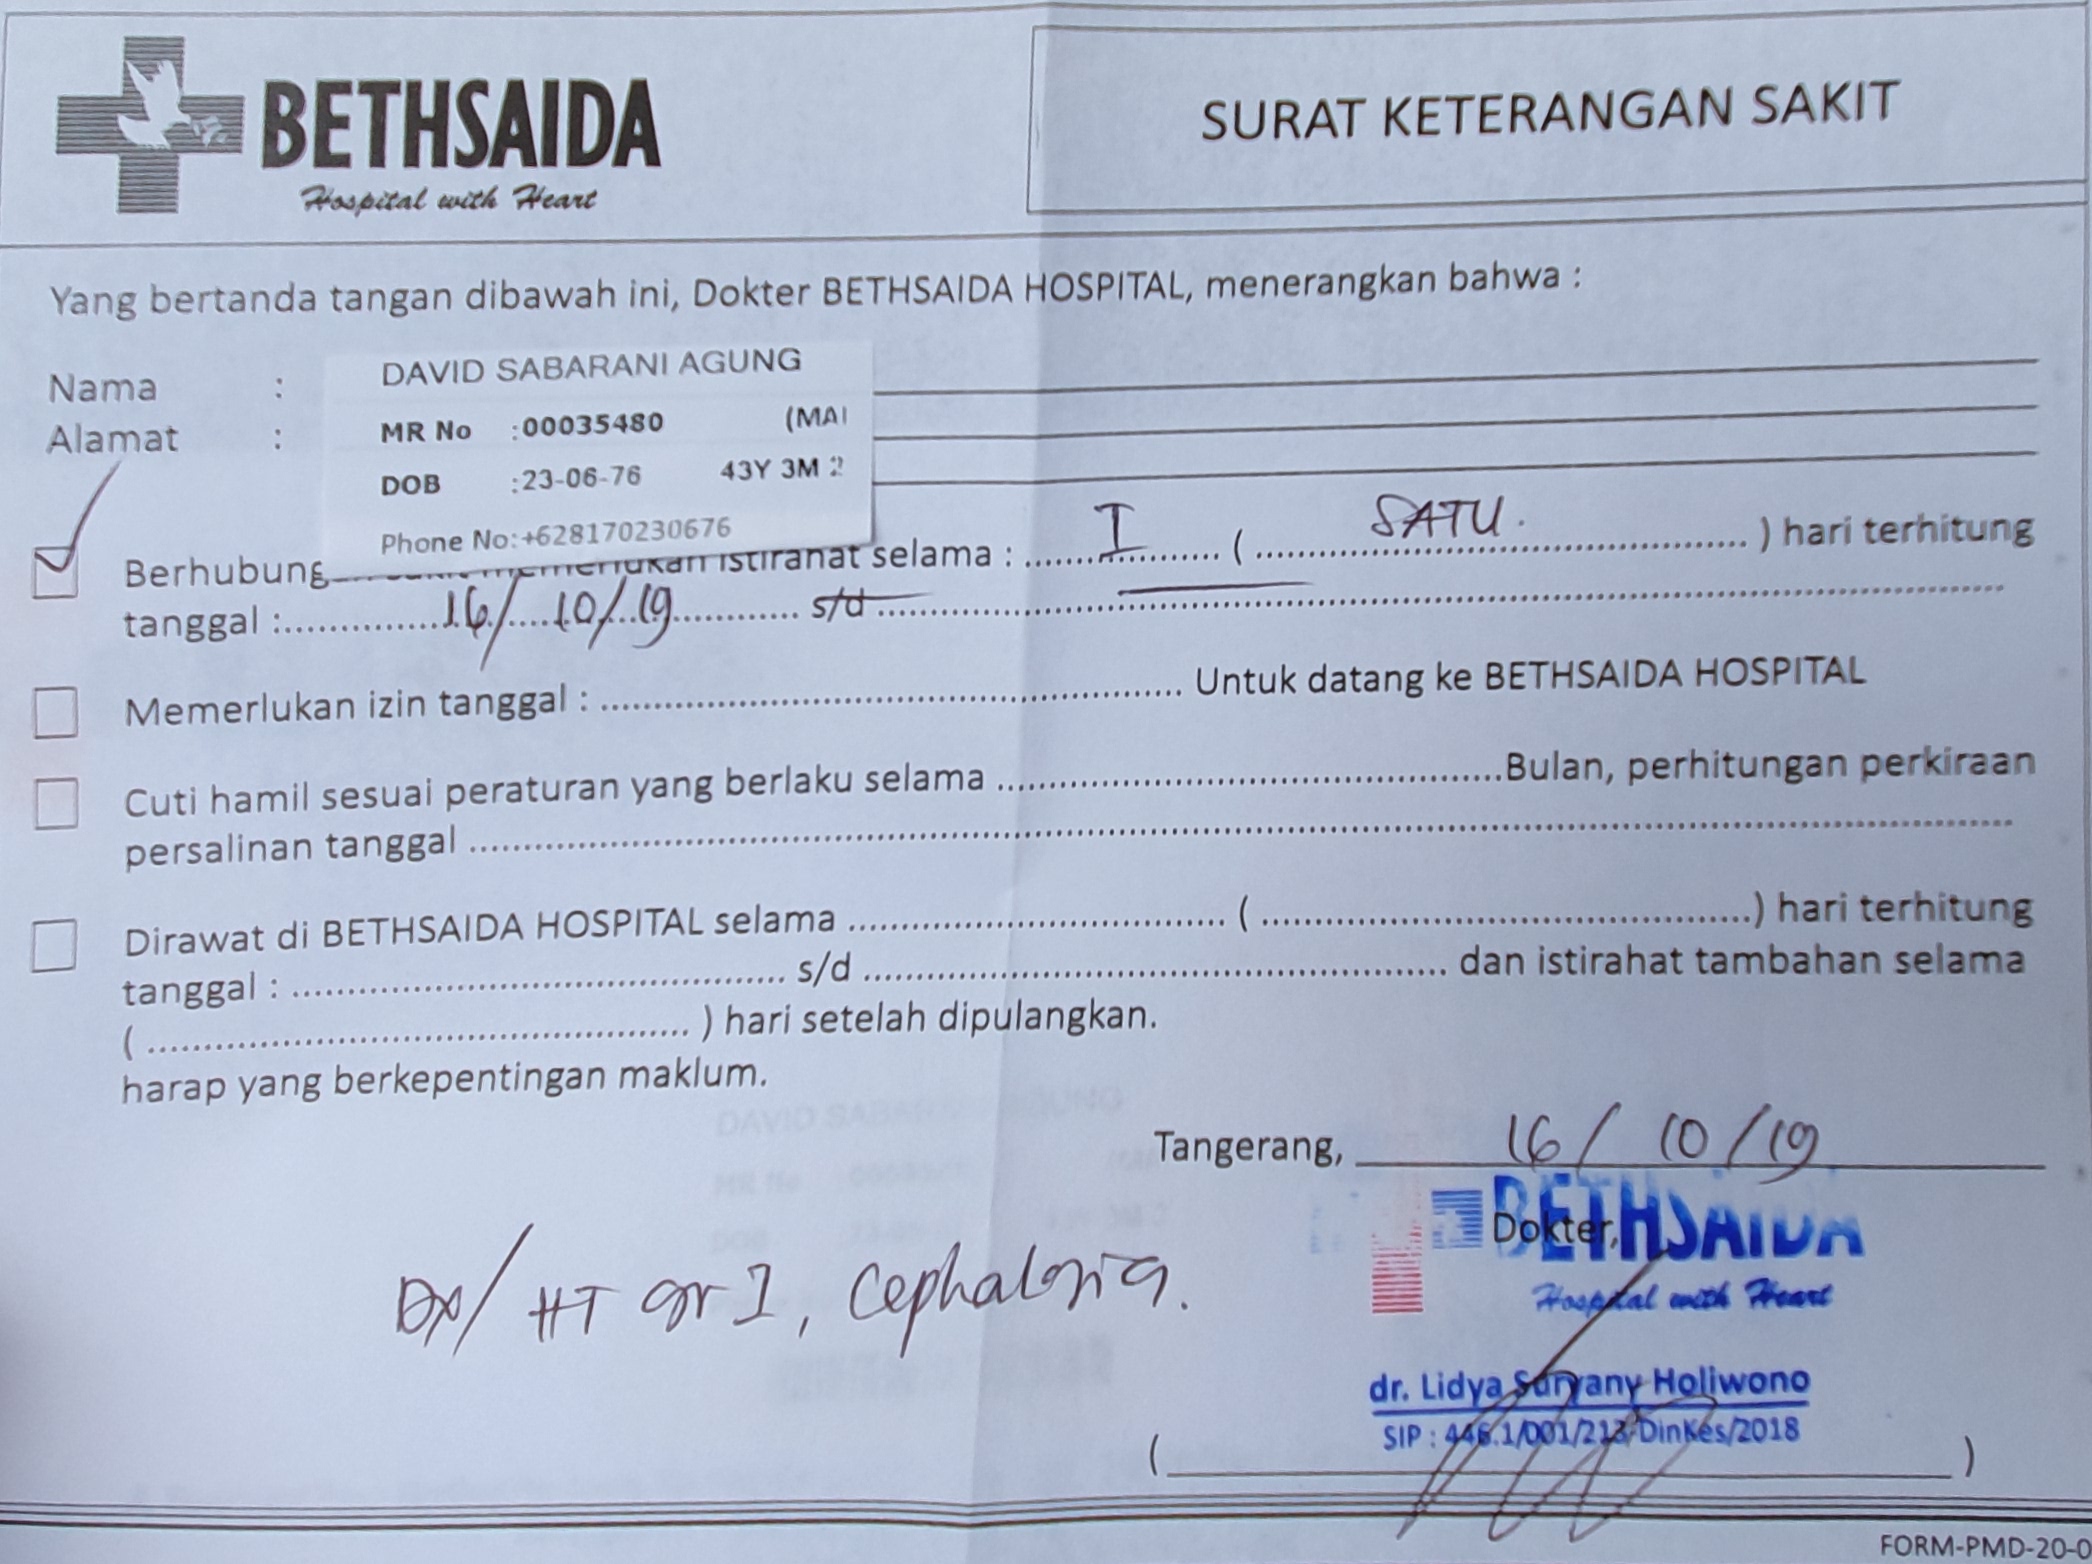 BETHSAIDA
Hospital with Heart
SURAT KETERANGAN SAKIT
Yang bertanda tangan dibawah ini, Dokter BETHSAIDA HOSPITAL, menerangkan bahwa :
Nama :
Alamat :
DAVID SABARANI AGUNG
MR No :00035480 (MAI
DOB :23-06-76 43Y 3M 2
Phone No:+628170230676
Berhubung memerlukan istirahat selama : I ( SATU. ) hari terhitung
tanggal : 16/10/19 s/d
Memerlukan izin tanggal : Untuk datang ke BETHSAIDA HOSPITAL
Cuti hamil sesuai peraturan yang berlaku selama Bulan, perhitungan perkiraan
persalinan tanggal
Dirawat di BETHSAIDA HOSPITAL selama ( ) hari terhitung
tanggal : s/d dan istirahat tambahan selama
( ) hari setelah dipulangkan.
harap yang berkepentingan maklum.
Tangerang, 16/10/19
BETHSAIDA
Dokter,
Hospital with Heart
Dx/ HT gr I, Cephalgia.
dr. Lidya Suryany Holiwono
SIP : 446.1/001/213-DinKes/2018
( )
FORM-PMD-20-0